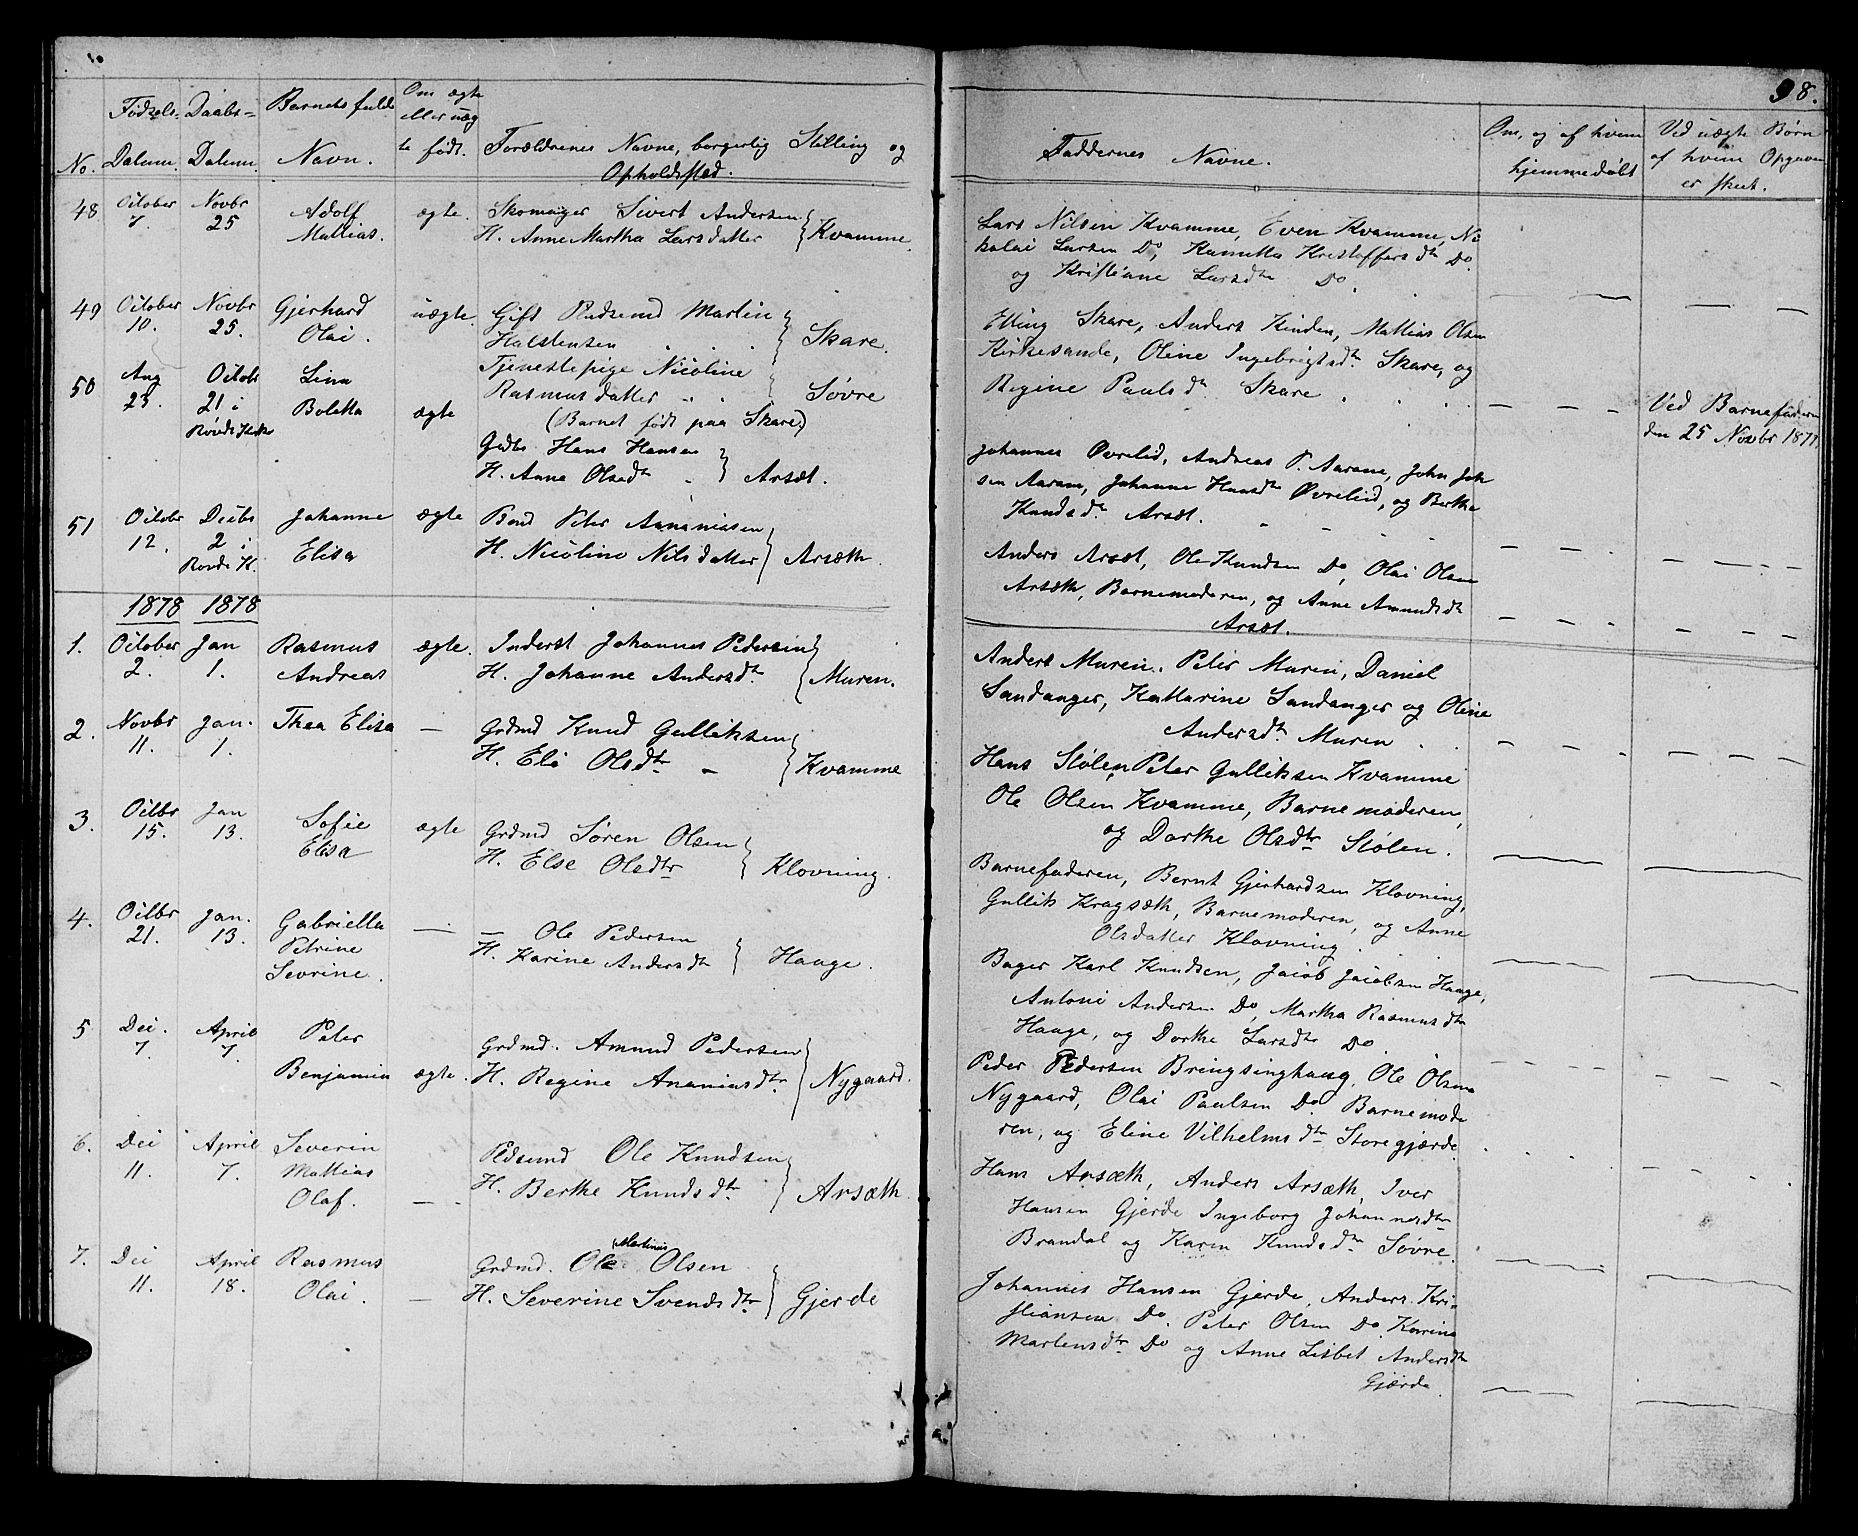 98.
No.
Fødsels-
Datum.
Daabs-
Datum.
Barnets fulde
Navn.
Om ægte
eller uæg
te født.
Forældrenes Navne, borgerlig Stilling og
Opholdssted.
Faddernes Navne.
Om, og af hvem
hjemmedøbt
Ved uægte Børn
af hvem Opgaven
er skeet.
48
October
7.
Novbr
25
Adolf
Mattias.
ægte.
Skomager Sivert Andersen
H. Anne Martha Larsdatter
Kvamme.
Lars Nilsen Kvamme, Even Kvamme, Ni
kolai Larsen Do, Kristoffersdtr Do
og Kristiane Larsdtr Do.
49
October
10.
Novbr
25.
Gjerhard
Olai.
uægte.
Gift Pladsmd Martin
Halstensen
Skare.
Tjenestepige Nicoline
Rasmusdatter
Søvre
(Barnet født paa Skare)
Elling Skare, Anders Kinden, Mattias Olsen
Kirkesande, Oline Ingebrigtsdtr Skare, og
Regine Paulsdtr Skare
Ved Barnefaderen
den 25 Novbr 1877
50
Aug
23.
Octobr
21 i
Rovde Kirke
Lina
Boletta
ægte
Gbdbr Hans Hansen
H. Anne Olsdtr
Arsæt.
Johannes Øvrelid, Andreas P. Aaram, John Joh
sen Aaram, Johanne Hansdtr Øvrelid, og Berthe
Knudsdtr Arsæt.
51
Octobr
12.
Decbr
2 i
Rovde K.
Johanne
Elisa
ægte
Bmd Peter Ananiassen
H. Nicoline Nilsdatter
Arsæth.
Anders Arsæt, Ole Knudsen Do, Olai Olsen
Arsæth, Barnemoderen, og Anne Amundsdtr
Arsæt.
1878 1878
1.
October
2.
Jan
1.
Rasmus
Andreas
ægte.
Inderst Johannes Pedersen
H. Johanne Andersdtr
Muren.
Anders Muren, Peter Muren, Daniel
Sandanger, Katharine Sandanger og Oline
Andersdtr Muren
2.
Novbr
11.
Jan.
1.
Thea Elisa
—
Grdmd Knud Gulliksen
H. Eli Olsdtr
Kvamme
Hans Stølen, Peter Gulliksen Kvamme
Ole Olsen Kvamme, Barnemoderen,
og Dorthe Olsdtr Stølen.
3.
Octbr
15.
Jan
13.
Sofie
Elisa
ægte
Grdmd Søren Olsen
H. Else Olsdtr
Klovning.
Barnefaderen, Bernt Gjerhardsen Klovning,
Gullik Kragsæth, Barnemoderen, og Anne
Olsdatter Klovning.
4.
Octbr
21.
Jan.
13.
Gabriella
Petrine
Sevrine.
—
— Ole Pedersen
H. Karine Andersdtr
Hauge.
Bager Karl Knudsen, Jacob Jacobsen Hauge,
Antoni Andersen Do, Martha Rasmusdtr
Hauge, og Dorthe Larsdtr Do
5
Dec.
7.
April
7.
Peter
Benjamin
ægte.
Grdmd. Amund Pedersen
H. Regine Ananiasdtr
Nygaard.
Peder Pedersen Bringsinghaug, Ole Olsen
Nygaard, Olai Paulsen Do. Barnemode
ren, og Eline Vilhelmsdtr Storegjærde
6.
Dec
11.
April
7.
Severin
Mattias
Olaf.
—
Pldsmd Ole Knudsen
H. Berthe Knudsdtr
Arsæth
Hans Arsæth, Anders Arsæth, Iver
Hansen Gjerde Ingeborg Johannesdtr
Brandal og Karen Knudsdtr Søvre
7.
Dec
11.
April
18.
Rasmus
Olai.
—
Grdmd. Ole Martinus Olsen
H. Severine Svendsdtr
Gjerde
Johannes Hansen Gjerde, Anders Kri-
stiansen Do. Peter Olsen Do. Karine
Martensdtr Do og Anne Lisbet Andersdtr
Gjærde.